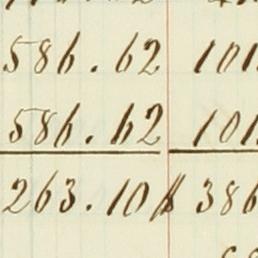 586.62 101
586.62 101
263.10 $ 386